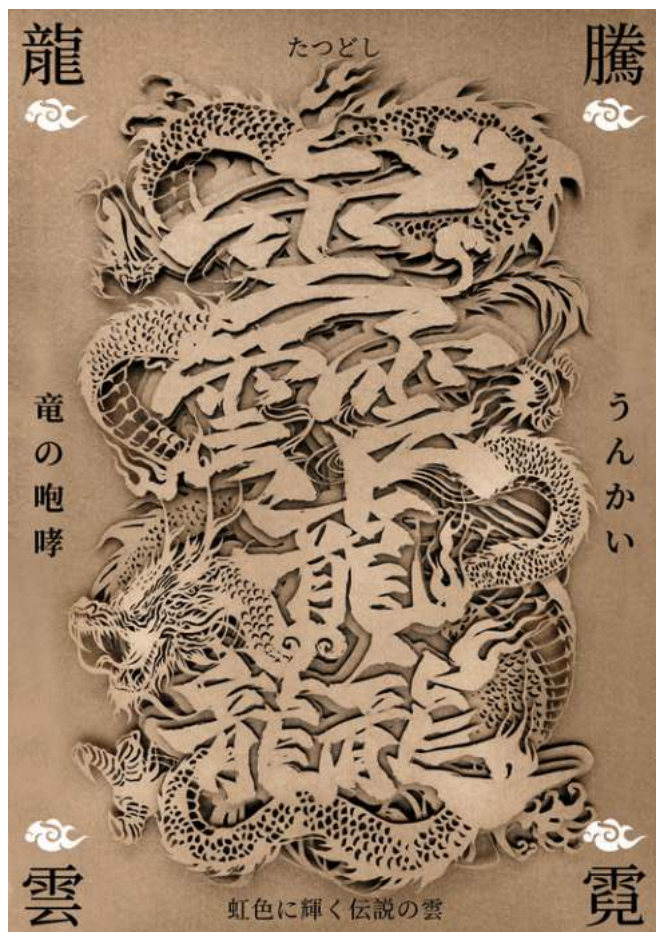 龍
たつどし
騰
竜の咆哮
うんかい
雲
雲雲
龍
龍龍
雲
虹色に輝く伝説の雲
霓